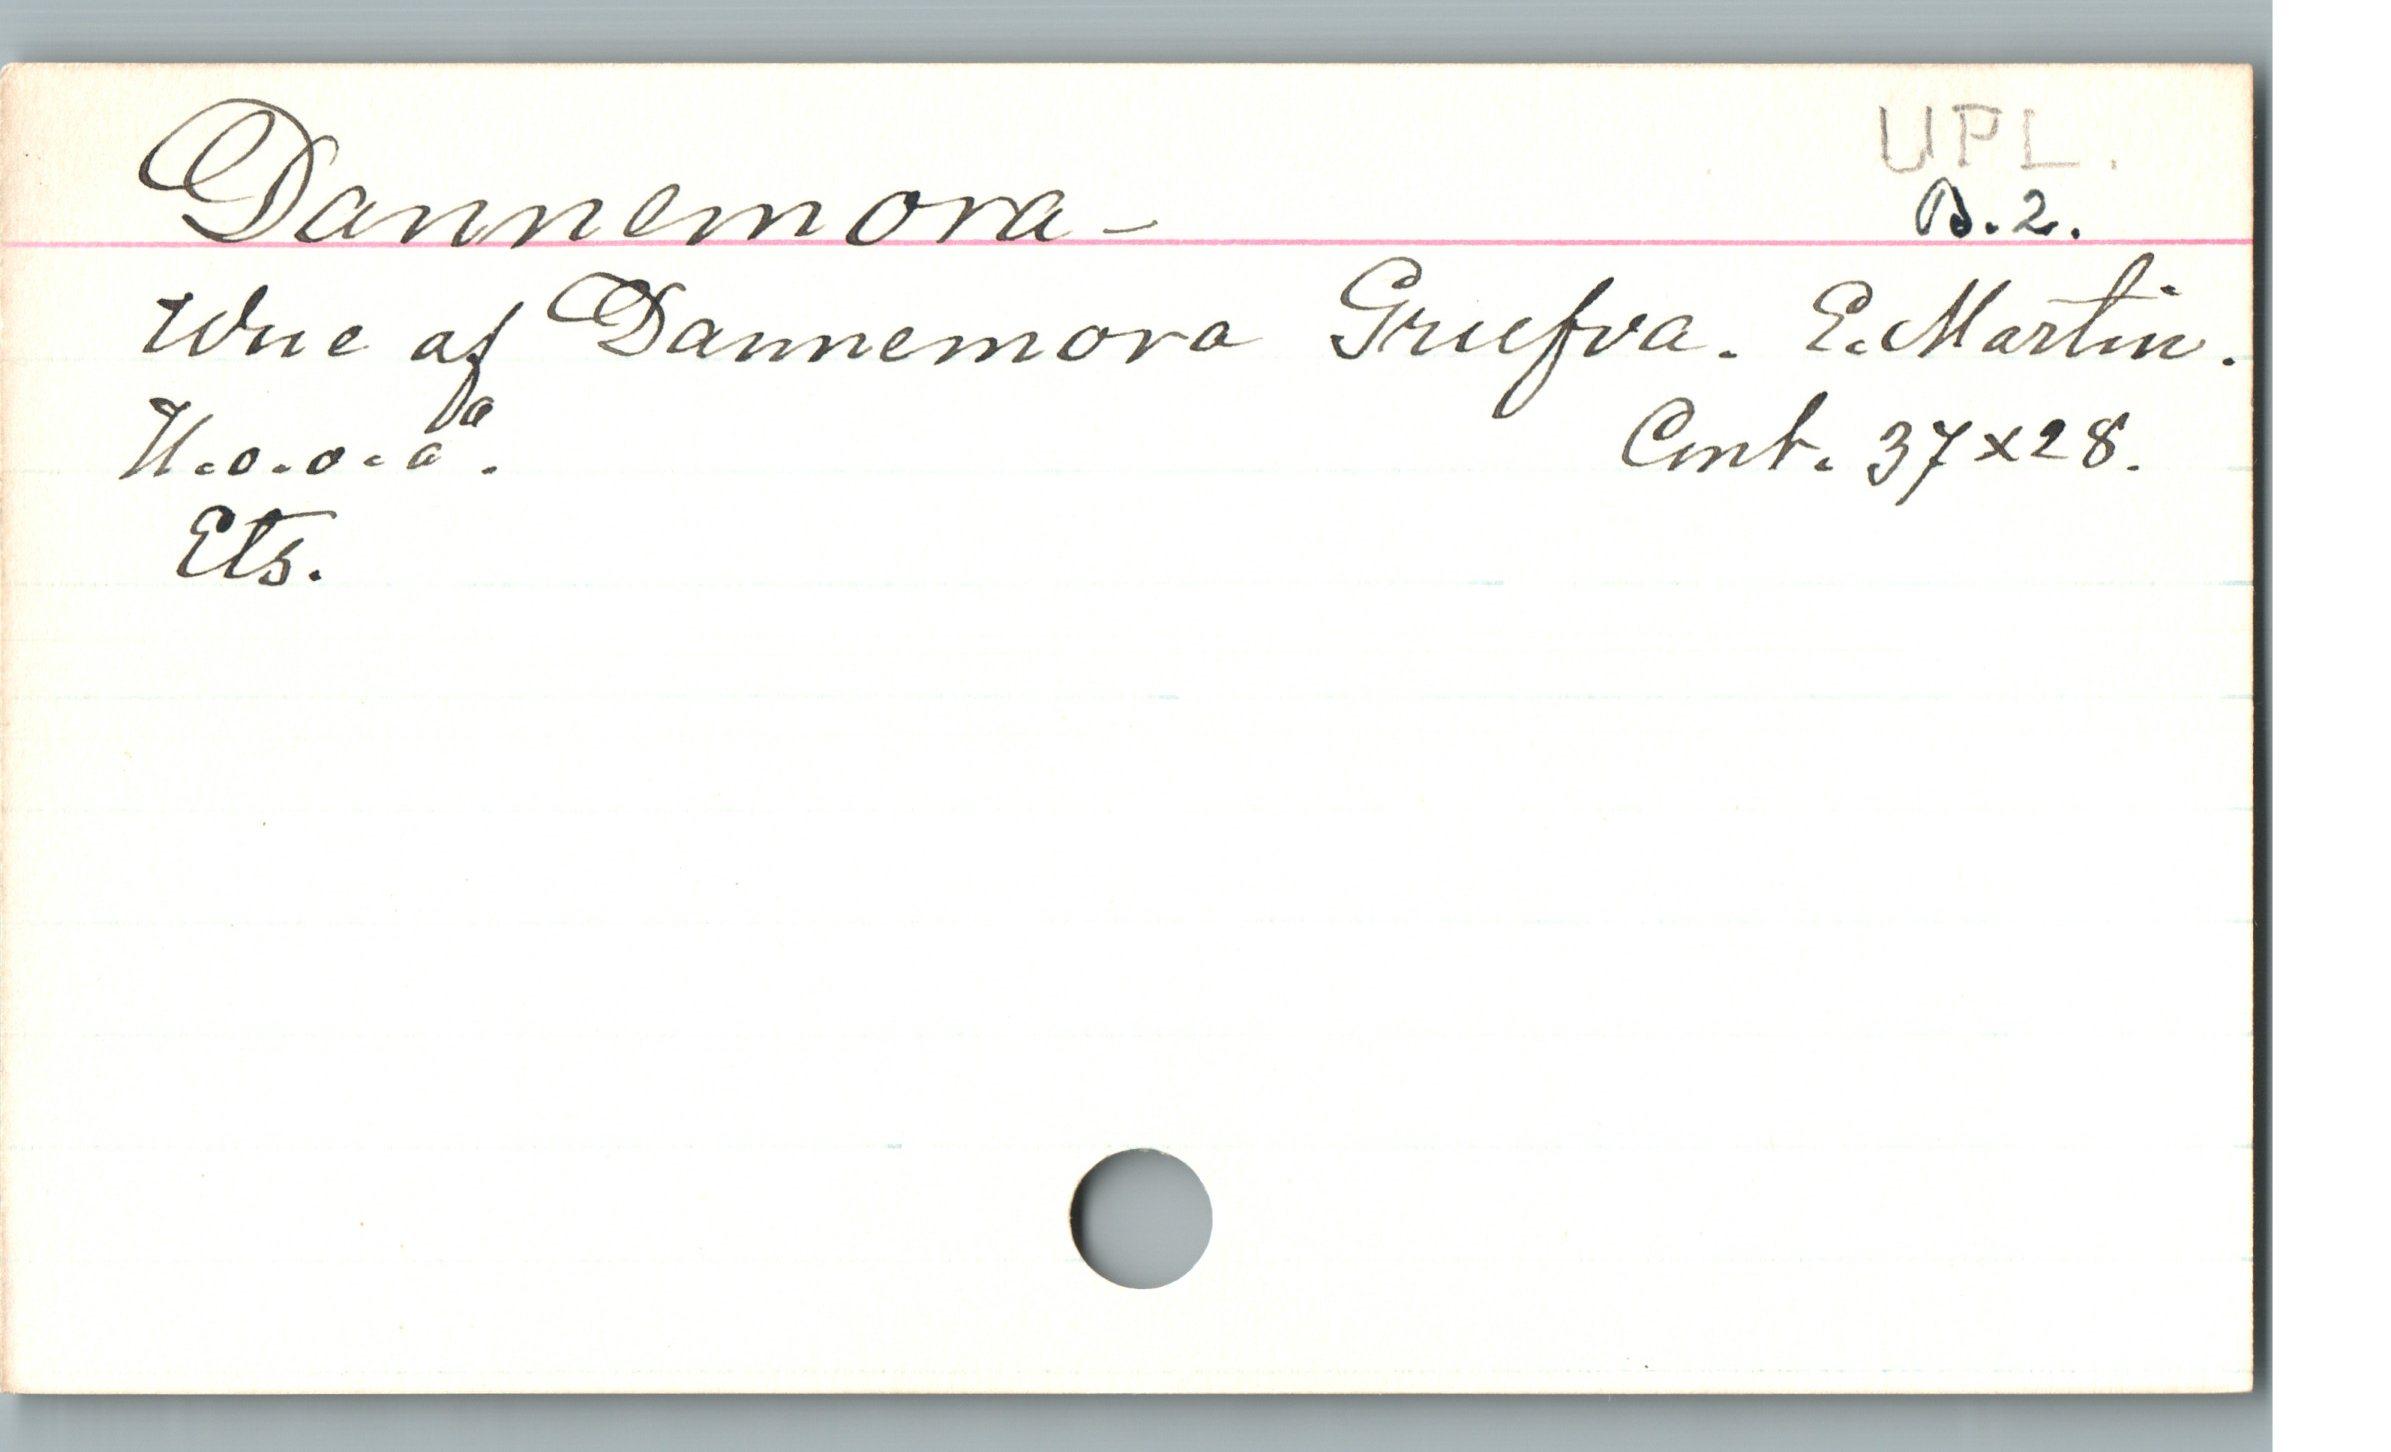 UPL.
Dannemora - B.2.
Wue af Dannemora Grufva. E. Martin.
U.o.o.a. Cmt. 37x28.
Ets.